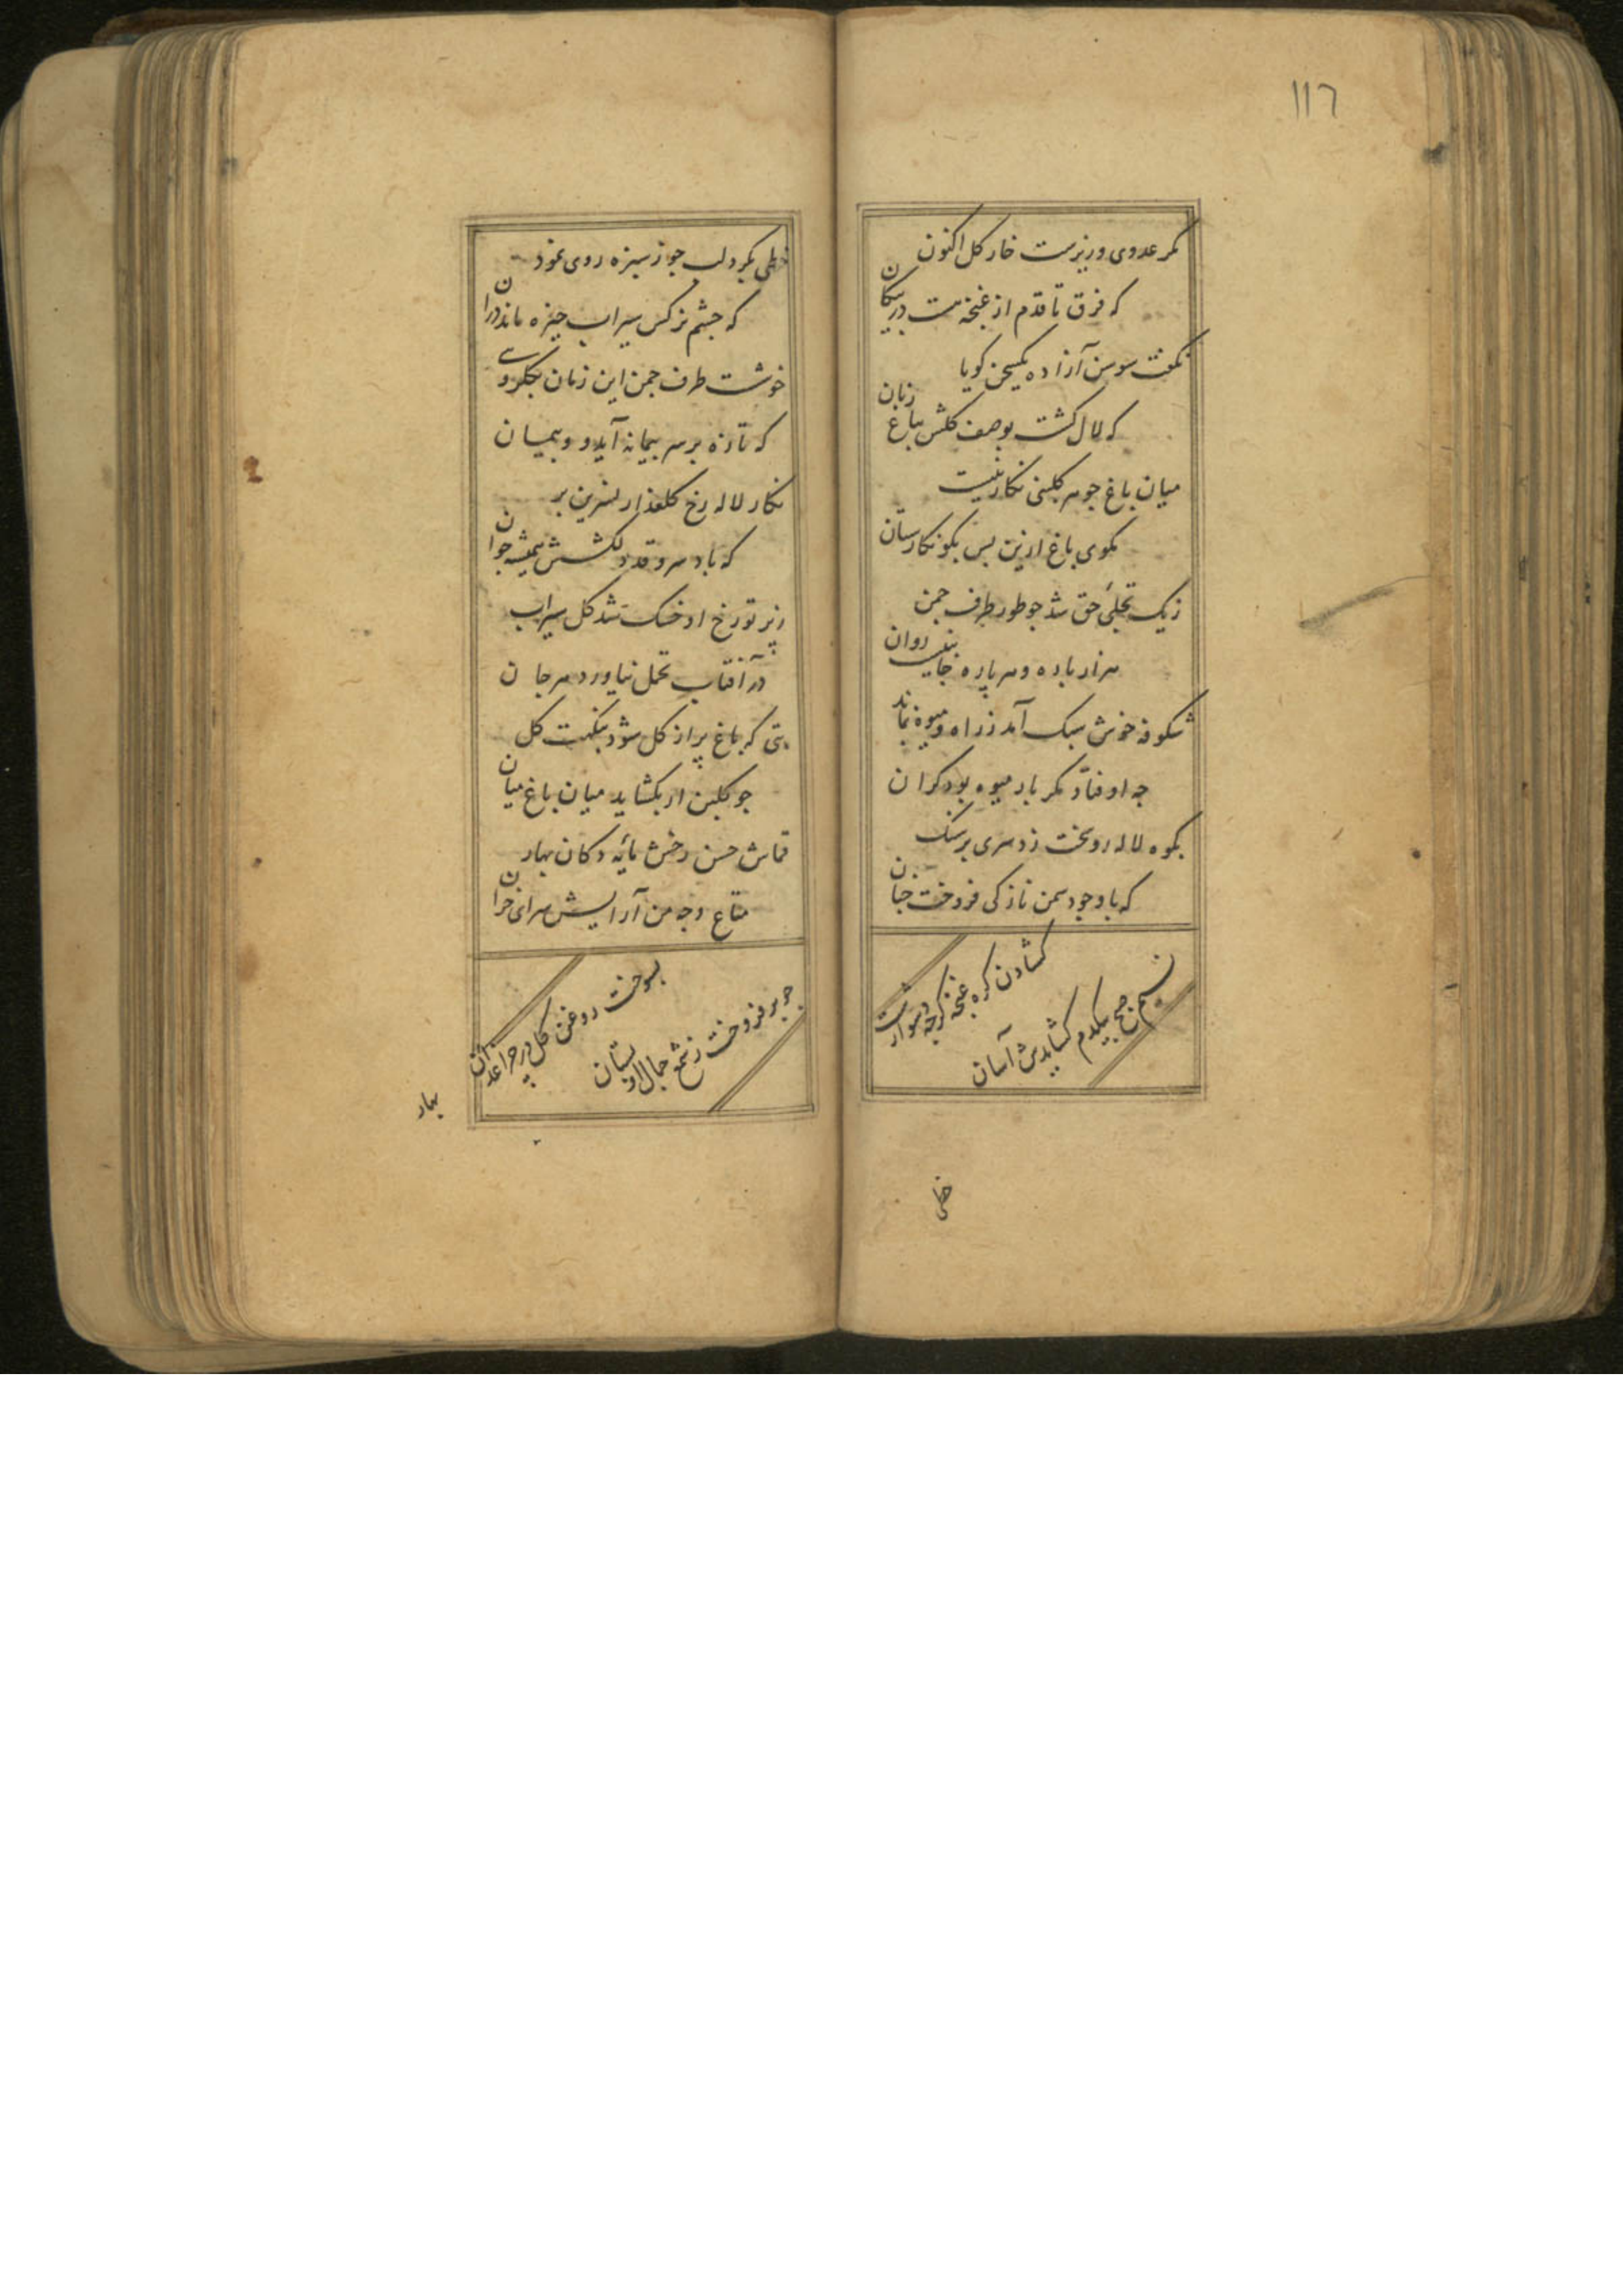 ١١٦
مکر عدوی وزیرست خار کل اکنون
که فرق تا قدم از غنچه هست در پیکان
نکفت سوسن آزاده یکسخن کویا
که لال کشت بوصف کلش بباغ زبان
میان باغ جو هر کلبنی نکاریست
مکوی باغ ازین بس بکو نکارستان
زیک تجلئ حق شد جو طور طرف جمن
هزار باره و هر پاره جانبی روان
شکوفه خوش سبک آمد ز راه و میوه بماند
جه اوفتاد مکر بار میوه بود کران
بکوه لاله رو سخت زد سری بر سنک
که با وجود سمن نازکی فروخت جنان
کشادن کره غنچه کرجه دشوارست
نسیم صبح بیکدم کشایدش آسان
خطی
خطی بکرد لب جو ز سبزه روی نمود
که جشم نرکس سیراب خیره ماند در آن
خوشست طرف جمن این زمان بکلروی
که تازه بر سر بیمانه آید و بیمان
نکار لاله رخ کلعذار نسرین بر
که باد سرو قد دلکشش همیشه جوان
ز پرتو رخ او خشک شد کل سیراب
در آفتاب تحمل نیاورد مرجان
بتی که باغ پر از کل شود بنکهت کل
جو کلبن ار بکشاید میان باغ میان
قماش حسن رخش مایٔه دکان بهار
متاع وجه من آرایش سرای خزان
بسوخت روغن کل در جراغدان
جو بر فروخت ز شمع جمال او بستان
بهار